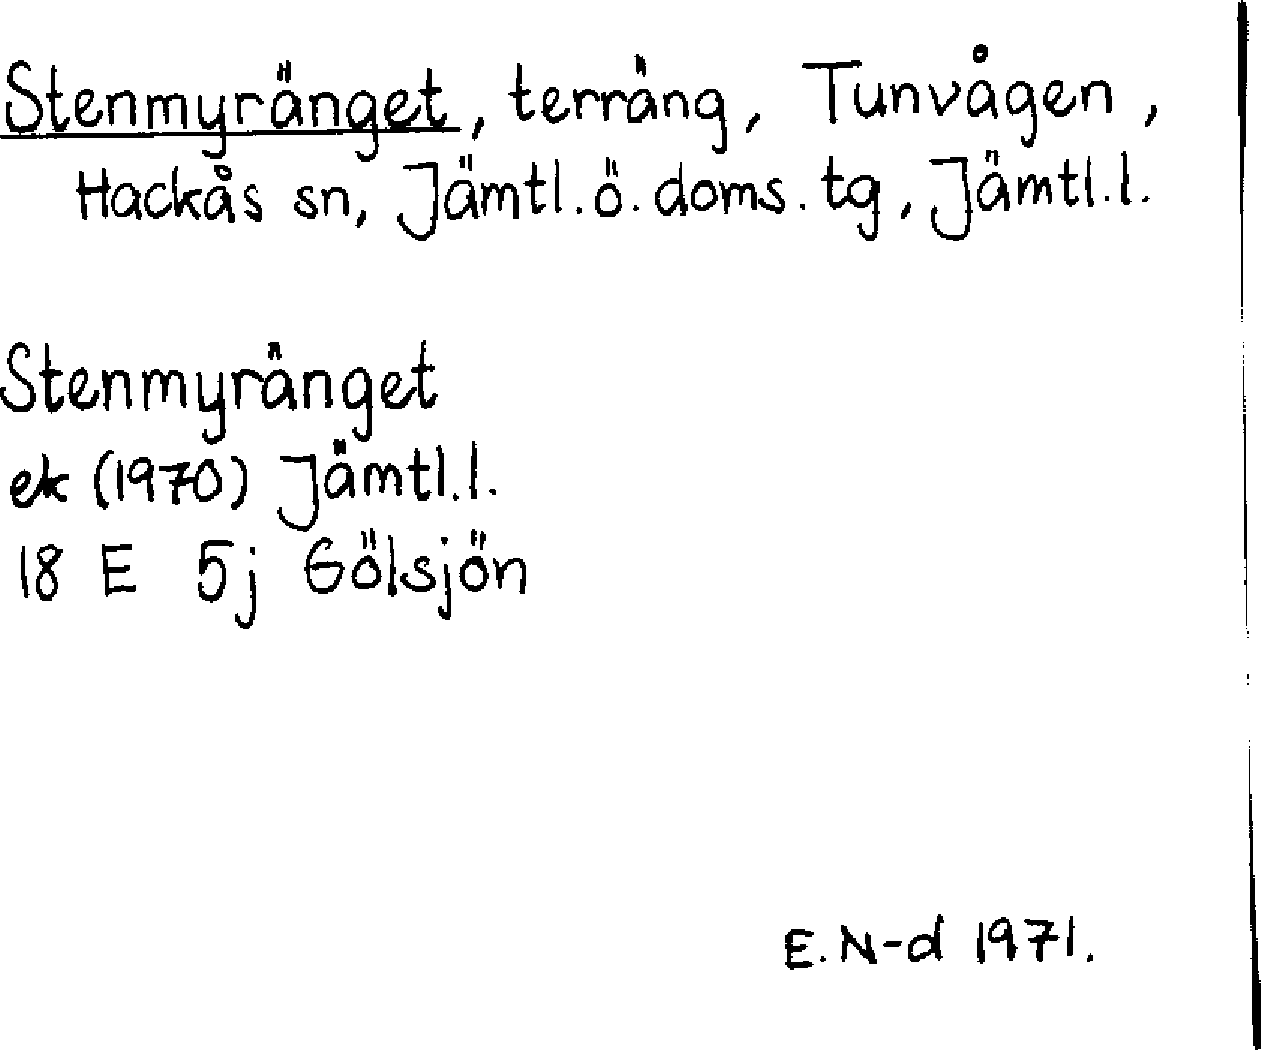 Stenmyränget, terräng, Tunvågen,
Hackås sn, Jämtl.ö.doms.tg, Jämtl.l.
Stenmyränget
ek (1970) Jämtl.l.
18 E 5j Gölsjön
E.N-d 1971.